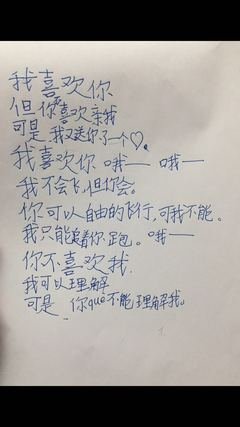 我喜欢你
但你喜欢亲我
可是,我又送你了一个♡。
我喜欢你 哦—— 哦——
我不会飞,但你会。
你可以自由的飞行,可我不能。
我只能追着你跑。哦——
你不喜欢我.
我可以理解
可是 你que不能理解我。